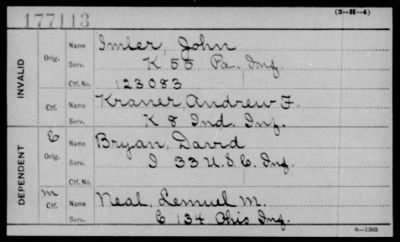 177113
(3—H—4)
INVALID
Orig. Name Imler, John
Serv. K 55 Pa. Inf.
Ctf. No. 123083
Ctf. Name Kraner, Andrew F.
Serv. K 8 Ind. Inf.
DEPENDENT
C
Orig. Name Bryan, David
Serv. I 33 U.S.C. Inf.
Ctf. No.
m
Ctf. Name Neal, Lemuel M.
Serv. C 134 Ohio Inf.